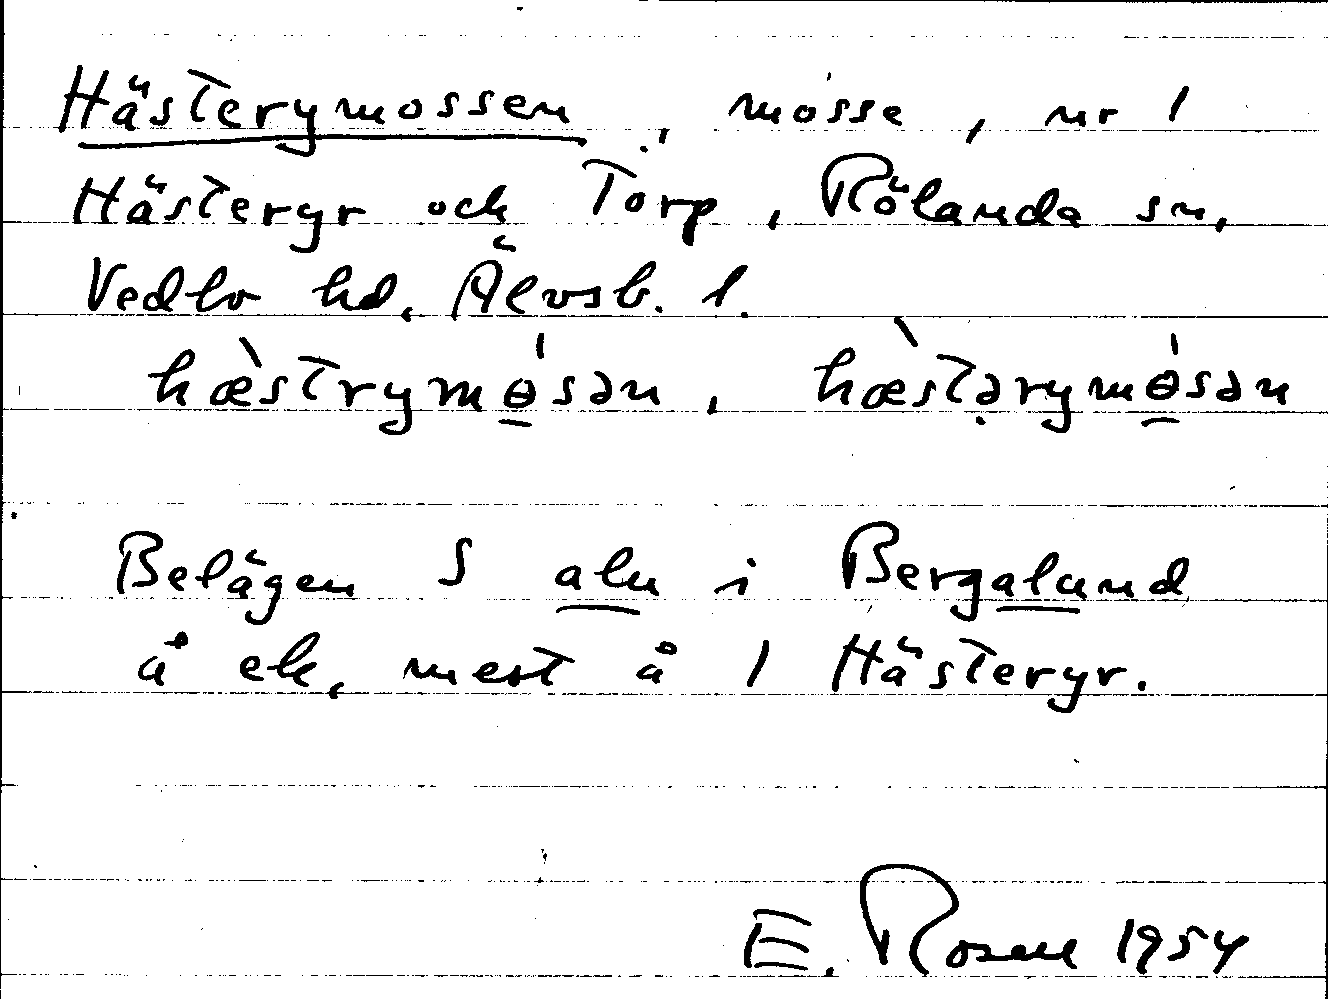 Hästerymossen, mosse, nr 1
Hästeryr och Torp, Rölanda sn,
Vedbo hd, Älvsb. l.
hæ̀strymɵ̲́sən, hæ̀stərymɵ̲́sən
Belägen S aln i Bergaland
å ek, mest å 1 Hästeryr.
E. Rosell 1954